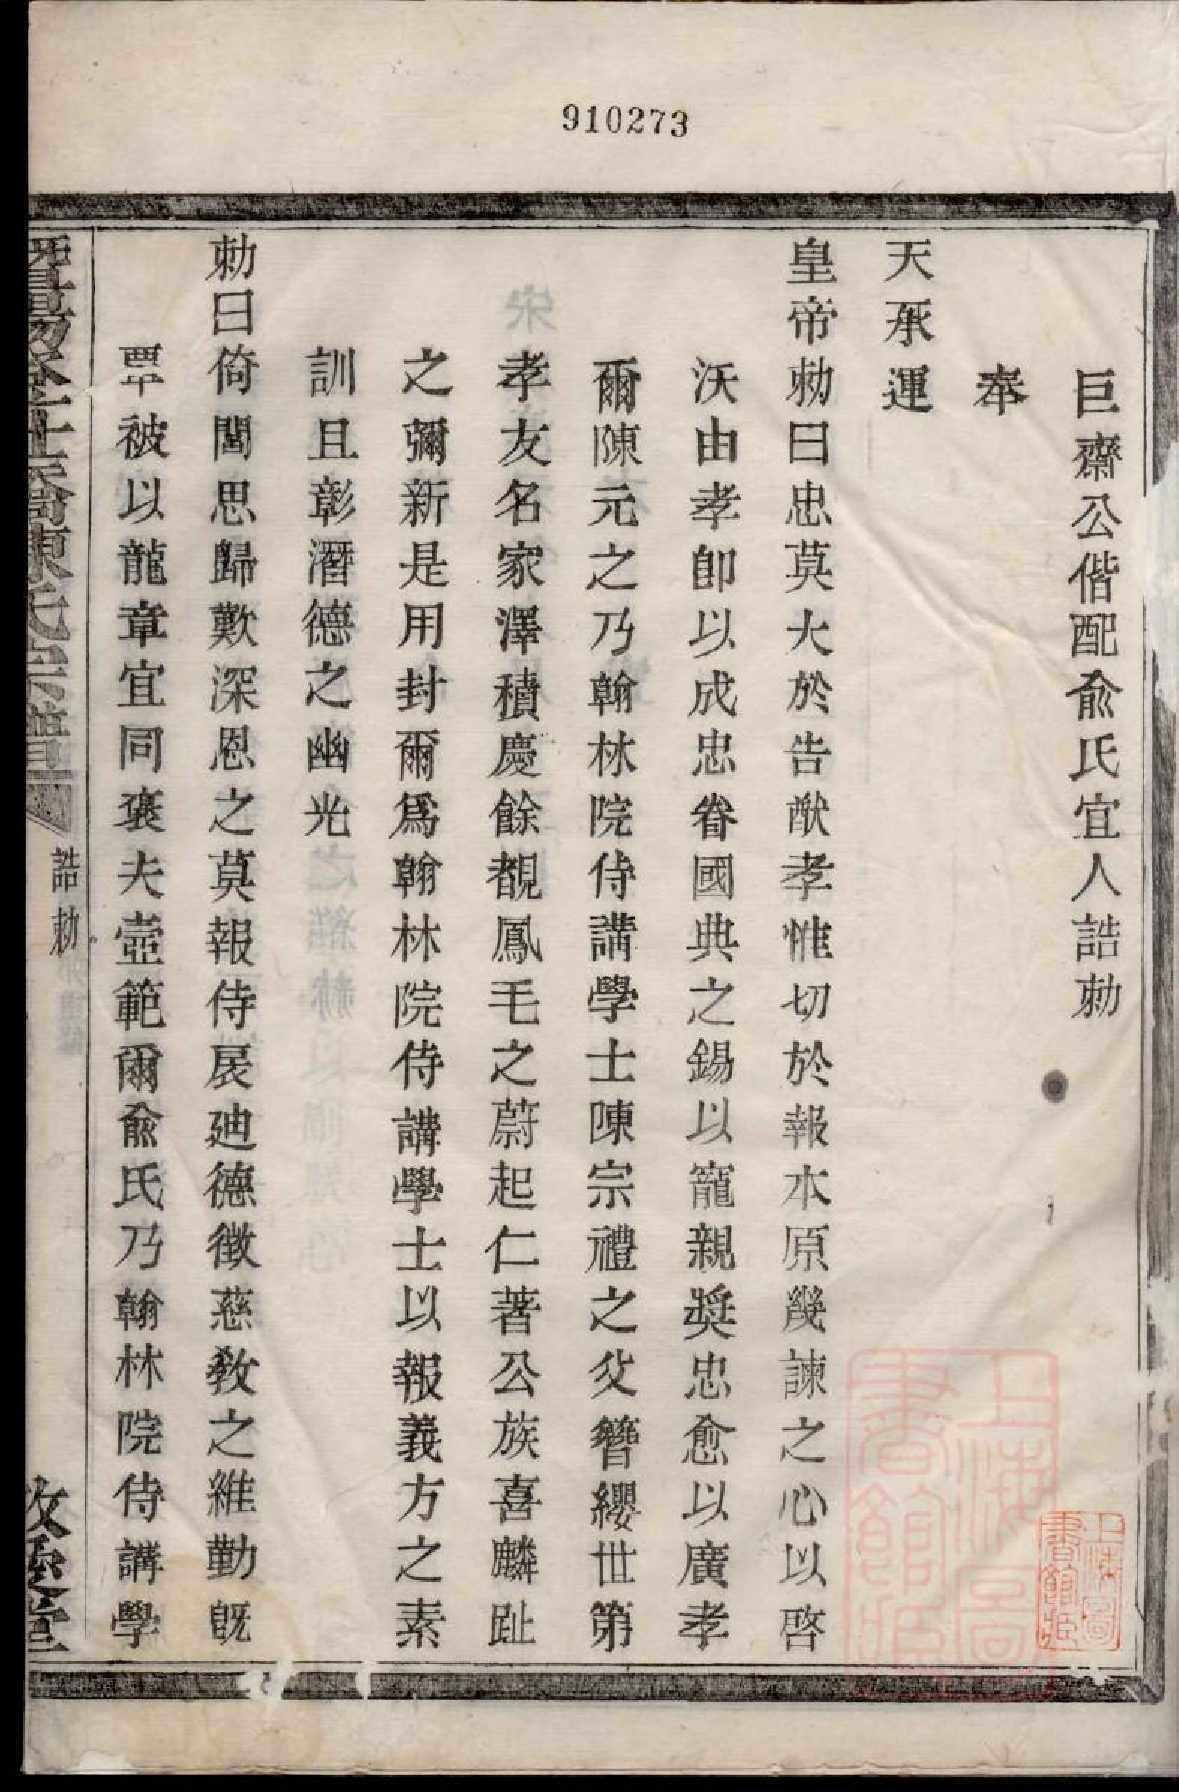 910273
巨齋公偕配俞氏宜人誥勅
奉
天承運
皇帝勅曰忠莫大於告猷孝惟切於報本原幾諫之心以啓
沃由孝卽以成忠眷國典之錫以寵親奬忠愈以廣孝
爾陳元之乃翰林院侍講學士陳宗禮之父簪纓世第
孝友名家澤積慶餘覩鳳毛之蔚起仁著公族喜麟趾
之彌新是用封爾爲翰林院侍講學士以報義方之素
訓且彰潛德之幽光
勅曰倚閭思歸歎深恩之莫報侍扆廸德徵慈敎之維勤旣
覃被以龍章宜同褒夫壼範爾俞氏乃翰林院侍講學
誥勅
上海圖書館藏
上海圖書館藏